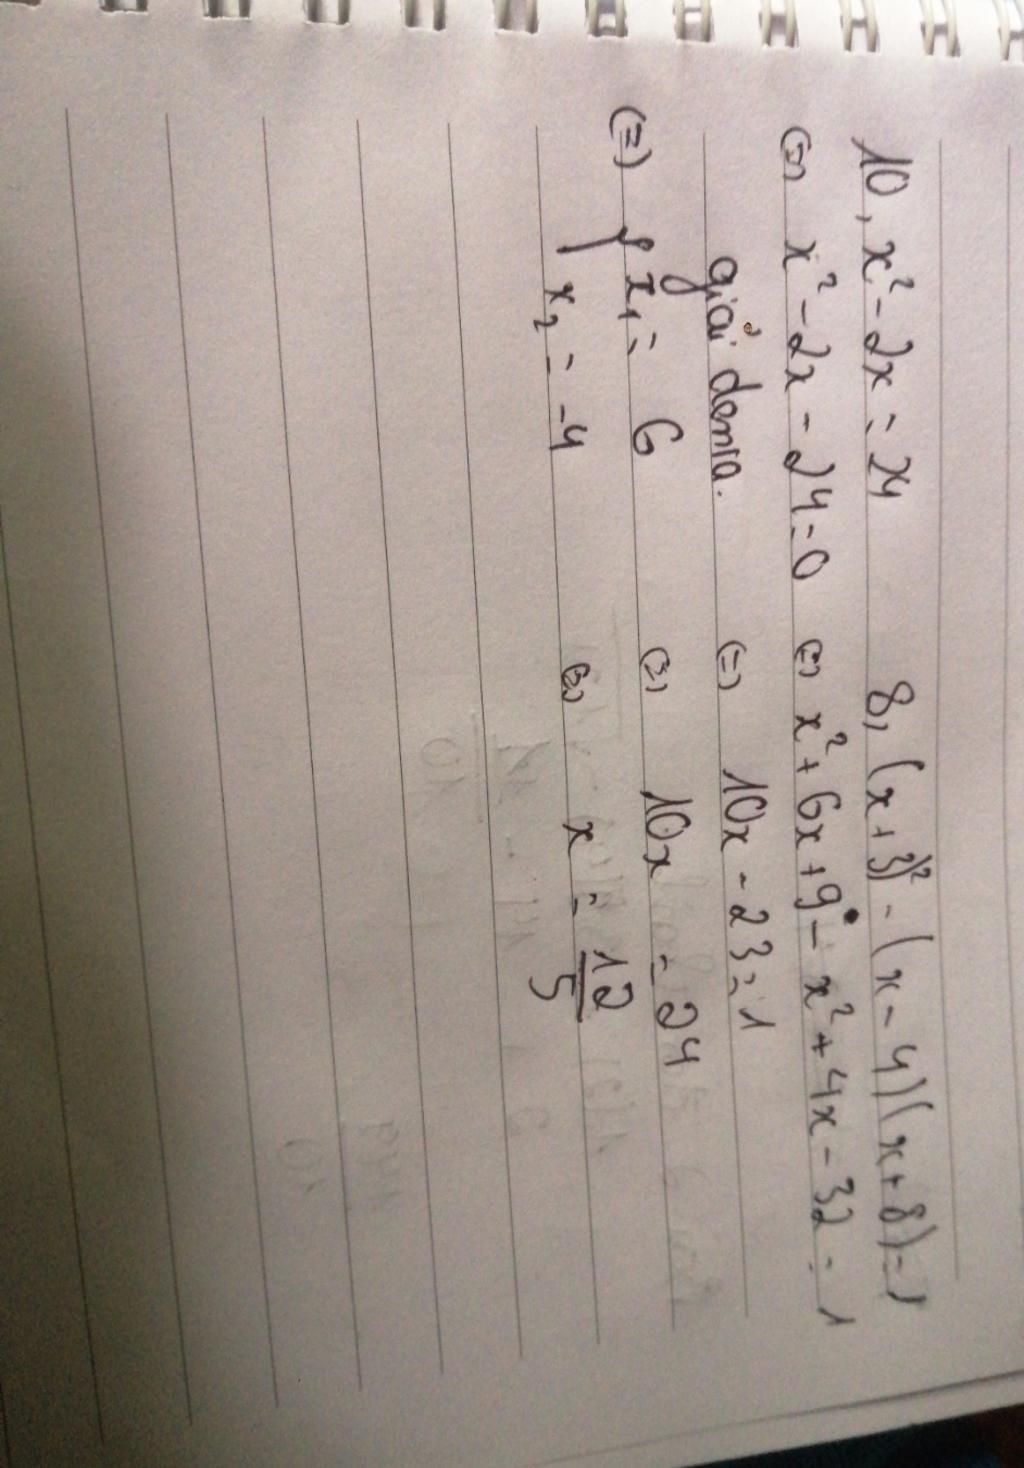 10, x² - 2x = 24
(=) x² - 2x - 24 = 0
giải denta.
(=) { x₁ = 6
x₂ = -4
8, (x + 3)² - (x - 4)(x + 8) = 1
(=) x² + 6x + 9 - x² + 4x - 32 = 1
(=) 10x - 23 = 1
(=) 10x = 24
(=) x = 12/5